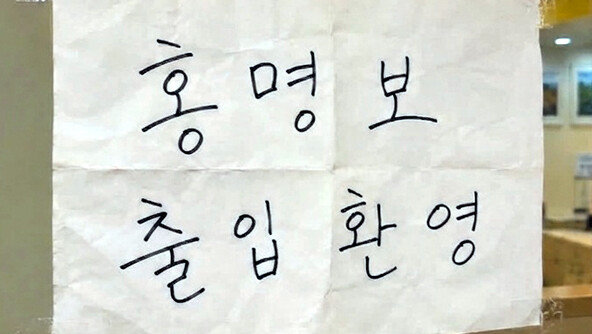 홍명보
출입환영